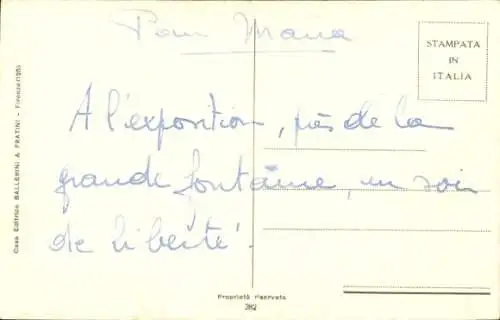 Pour Mana
STAMPATA
IN
ITALIA
A l'exposition, près de la
grande fontaine, un soir
de liberté.
Casa Editrice BALLERINI & FRATINI - Firenze (195)
Proprietà riservata
282